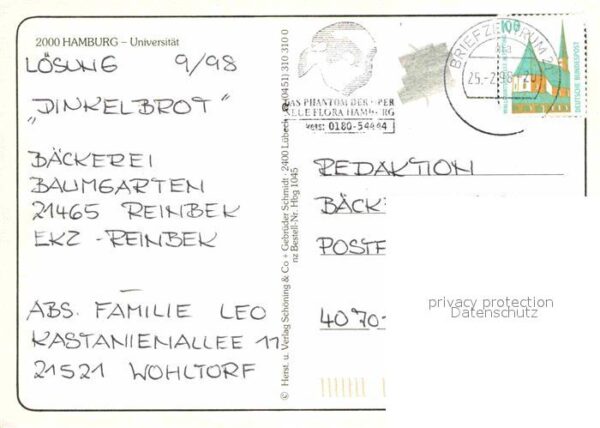 2000 HAMBURG – Universität
LÖSUNG 9/98
„DINKELBROT"
BÄCKEREI
BAUMGARTEN
21465 REINBEK
EKZ - REINBEK
ABS. FAMILIE LEO
KASTANIENALLEE 11
21521 WOHLTORF
© Herst. u. Verlag Schöning & Co + Gebrüder Schmidt · 2400 Lübeck · (0451) 310 310 0
Bestell-Nr. Hbg 1045
DAS PHANTOM DER OPER
NEUE FLORA HAMBURG
0180-54444
BRIEFZENTRUM 2
25.-2.98-20
100
DEUTSCHE BUNDESPOST
REDAKTION
BÄCK
POSTF
4070-
privacy protection
Datenschutz